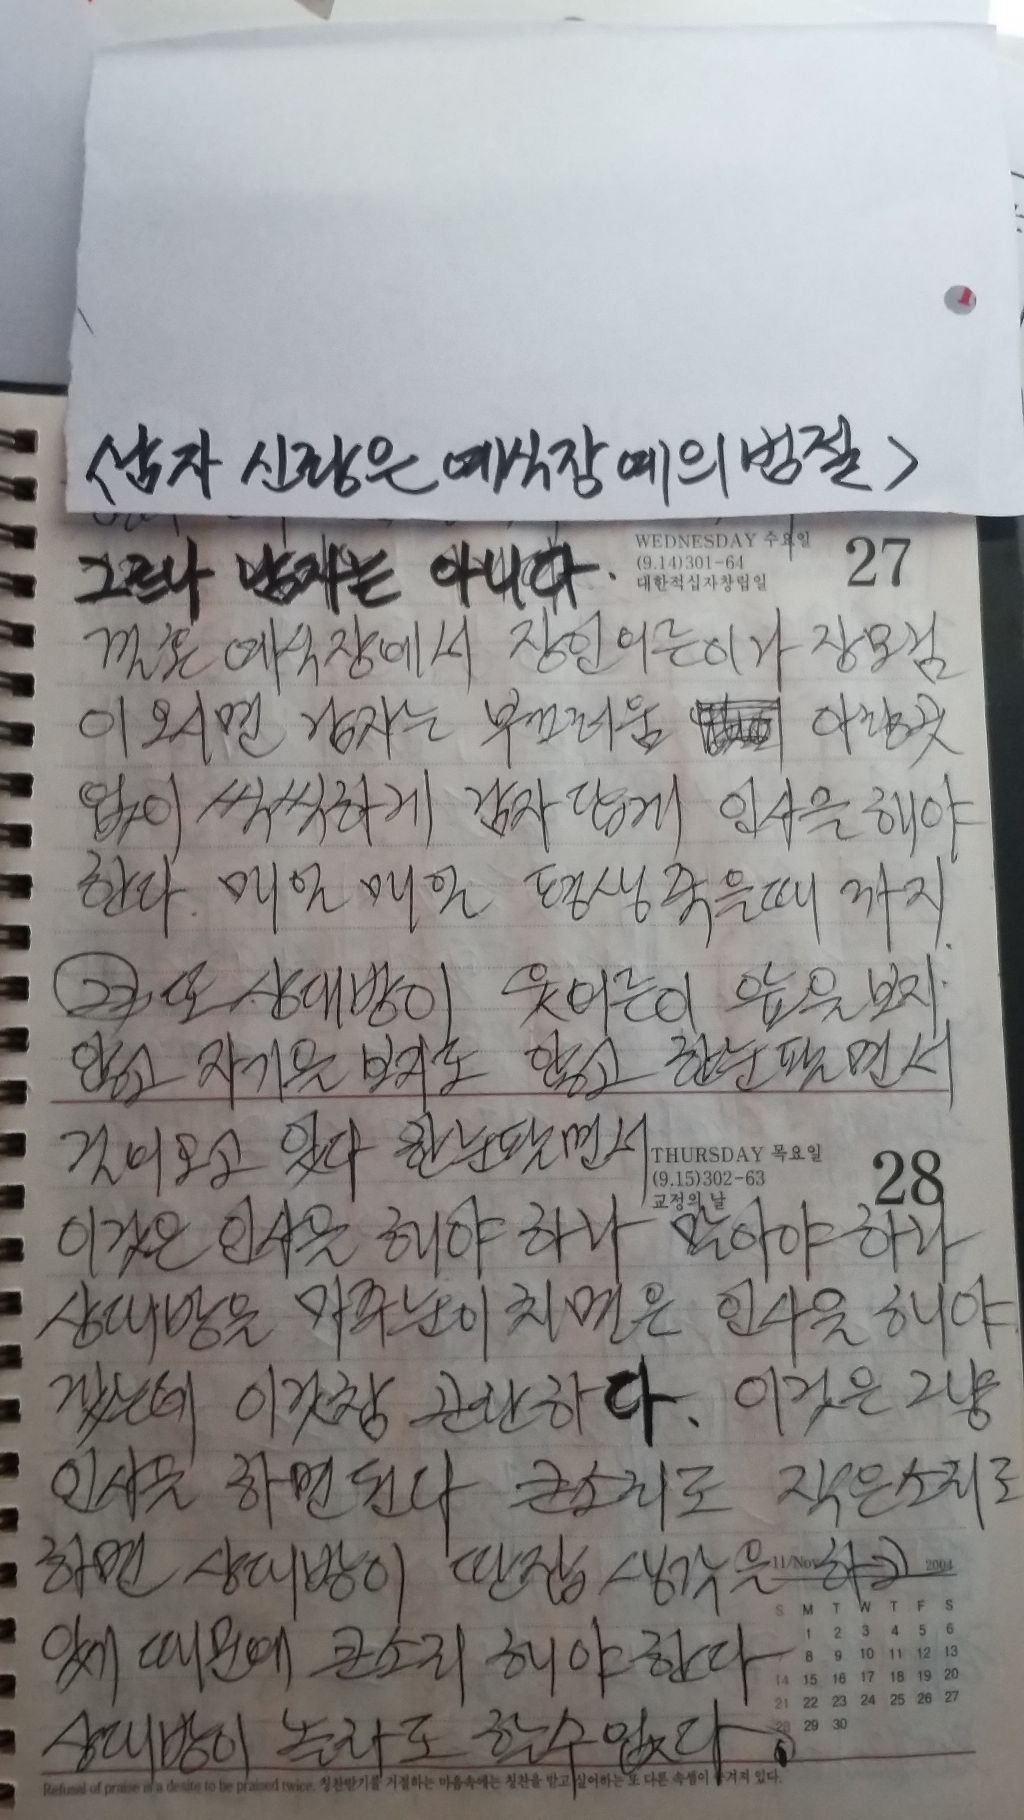 <남자 신랑은 예식장 예의 범절>
그르나 남자는 아니다.
WEDNESDAY 수요일
(9.14)301-64
대한적십자창립일
27
예식장에서 장인어른이가 장모님
이 오시면 남자는 부끄러움 아랑곳
없이 씩씩하게 남자 답게 인사을 해야
한다. 매일 매일 평생 죽을때 까지.
그리고 또 상대방이 웃어른이 앞을 보지
않고 자기을 보지도 않고 한눈 팔면서
걸어오고 있다 한눈팔면서
THURSDAY 목요일
(9.15)302-63
교정의 날
28
이것은 인사을 해야 하나 말아야 하나
상대방을 마주눈이 치면은 인사을 해야
겠는데 이것참 곤란하다. 이것은 그냥
인사을 하면 된다 큰소리로 작은소리로
하면 상대방이 딴짐 생각을 하고
있에 때문에 큰소리 해야 한다
11/Nov 2004
S M T W T F S
1 2 3 4 5 6
8 9 10 11 12 13
14 15 16 17 18 19 20
21 22 23 24 25 26 27
28 29 30
상대방이 놀라도 할수 없다
Refusal of praise is a desite to be praised twice. 칭찬받기를 거절하는 마음속에는 칭찬을 받고 싶어하는 또 다른 속셈이 숨겨져 있다.